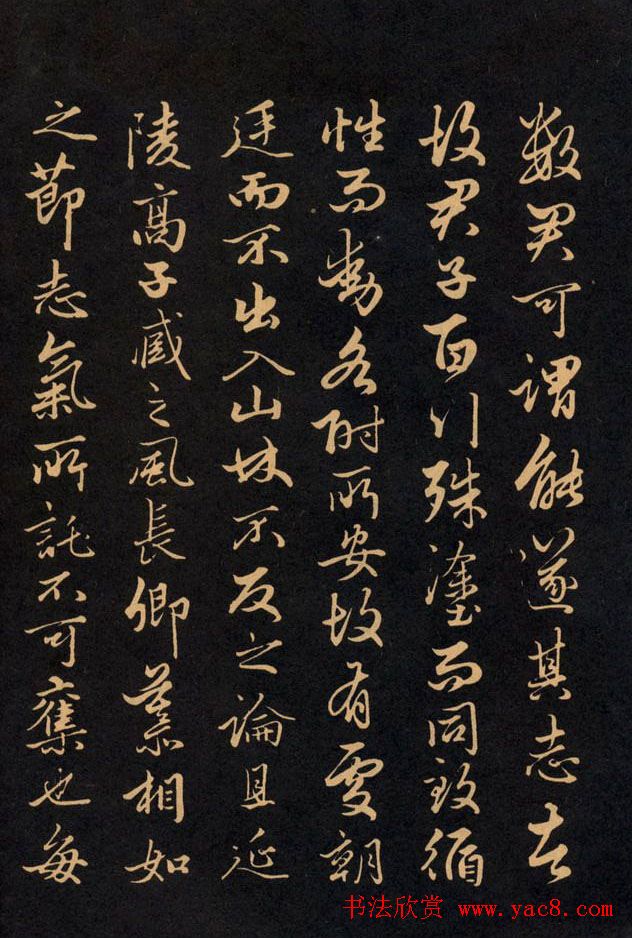 数君可謂能遂其志者
故君子百行殊塗而同致循
性而動各附所安故有處朝
廷而不出入山林不反之論且延
陵高子臧之風長卿慕相如
之節志氣所託不可奪也每
书法欣赏 www.yac8.com